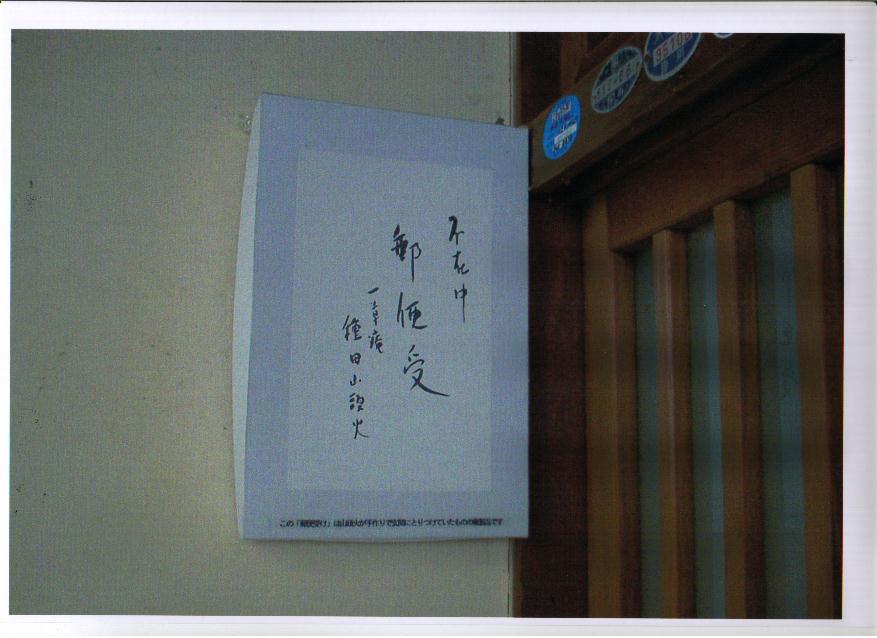 不在中
郵便受
一草庵
種田山頭火
この「郵便受け」は山頭火が手作りで玄関にとりつけていたものの複製品です